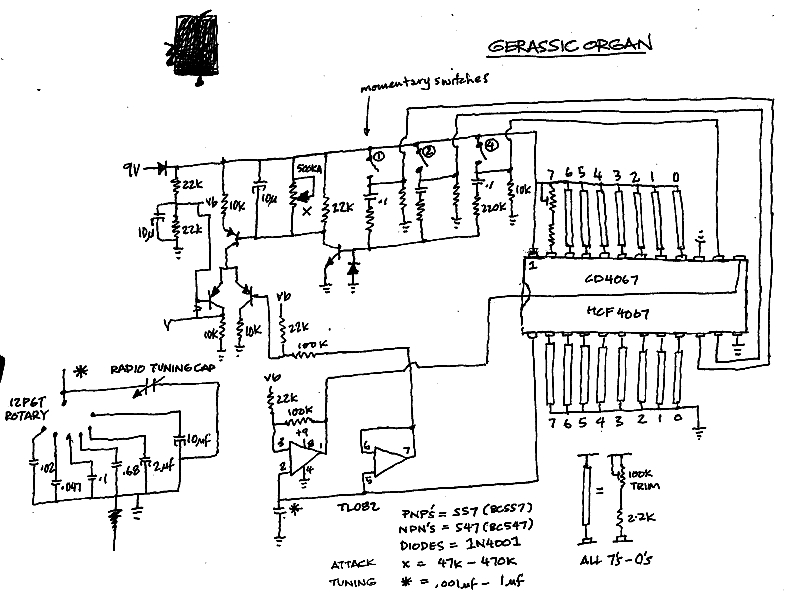 GERASSIC ORGAN
momentary switches
9V
22K
Vb
10K
10µ
500KA
X
22K
1
2
4
.1
.1
220K
10K
7 6 5 4 3 2 1 0
10µ
22K
1
CD4067
MCF4067
V
10K
10K
Vb
22K
100K
*
RADIO TUNING CAP
12P6T
ROTARY
Vb
22K
100K
+9
3
8
1
2
4
6
7
5
7 6 5 4 3 2 1 0
.02
.047
.1
.68
2µf
10µf
*
TL082
=
100K
TRIM
2.2K
PNP'S = 557 (BC557)
NPN'S = 547 (BC547)
DIODES = 1N4001
ALL 7'S-0'S
ATTACK X = 47K - 470K
TUNING * = .001µf - 1µf